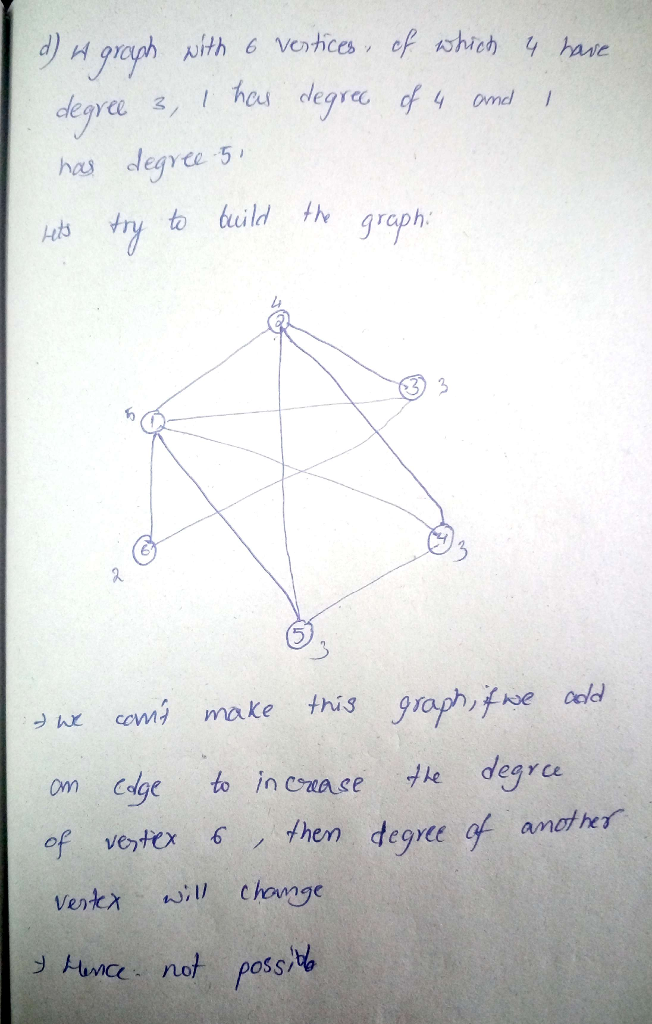 d) A graph with 6 vertices, of which 4 have
degree 3, 1 has degree of 4 and 1
has degree 5.
Lets try to build the graph:
4
2
3 3
5 1
6
4 3
2
5
3
→ we can't make this graph, if we add
an edge to increase the degree
of vertex 6, then degree of another
vertex will change
→ Hence not possible